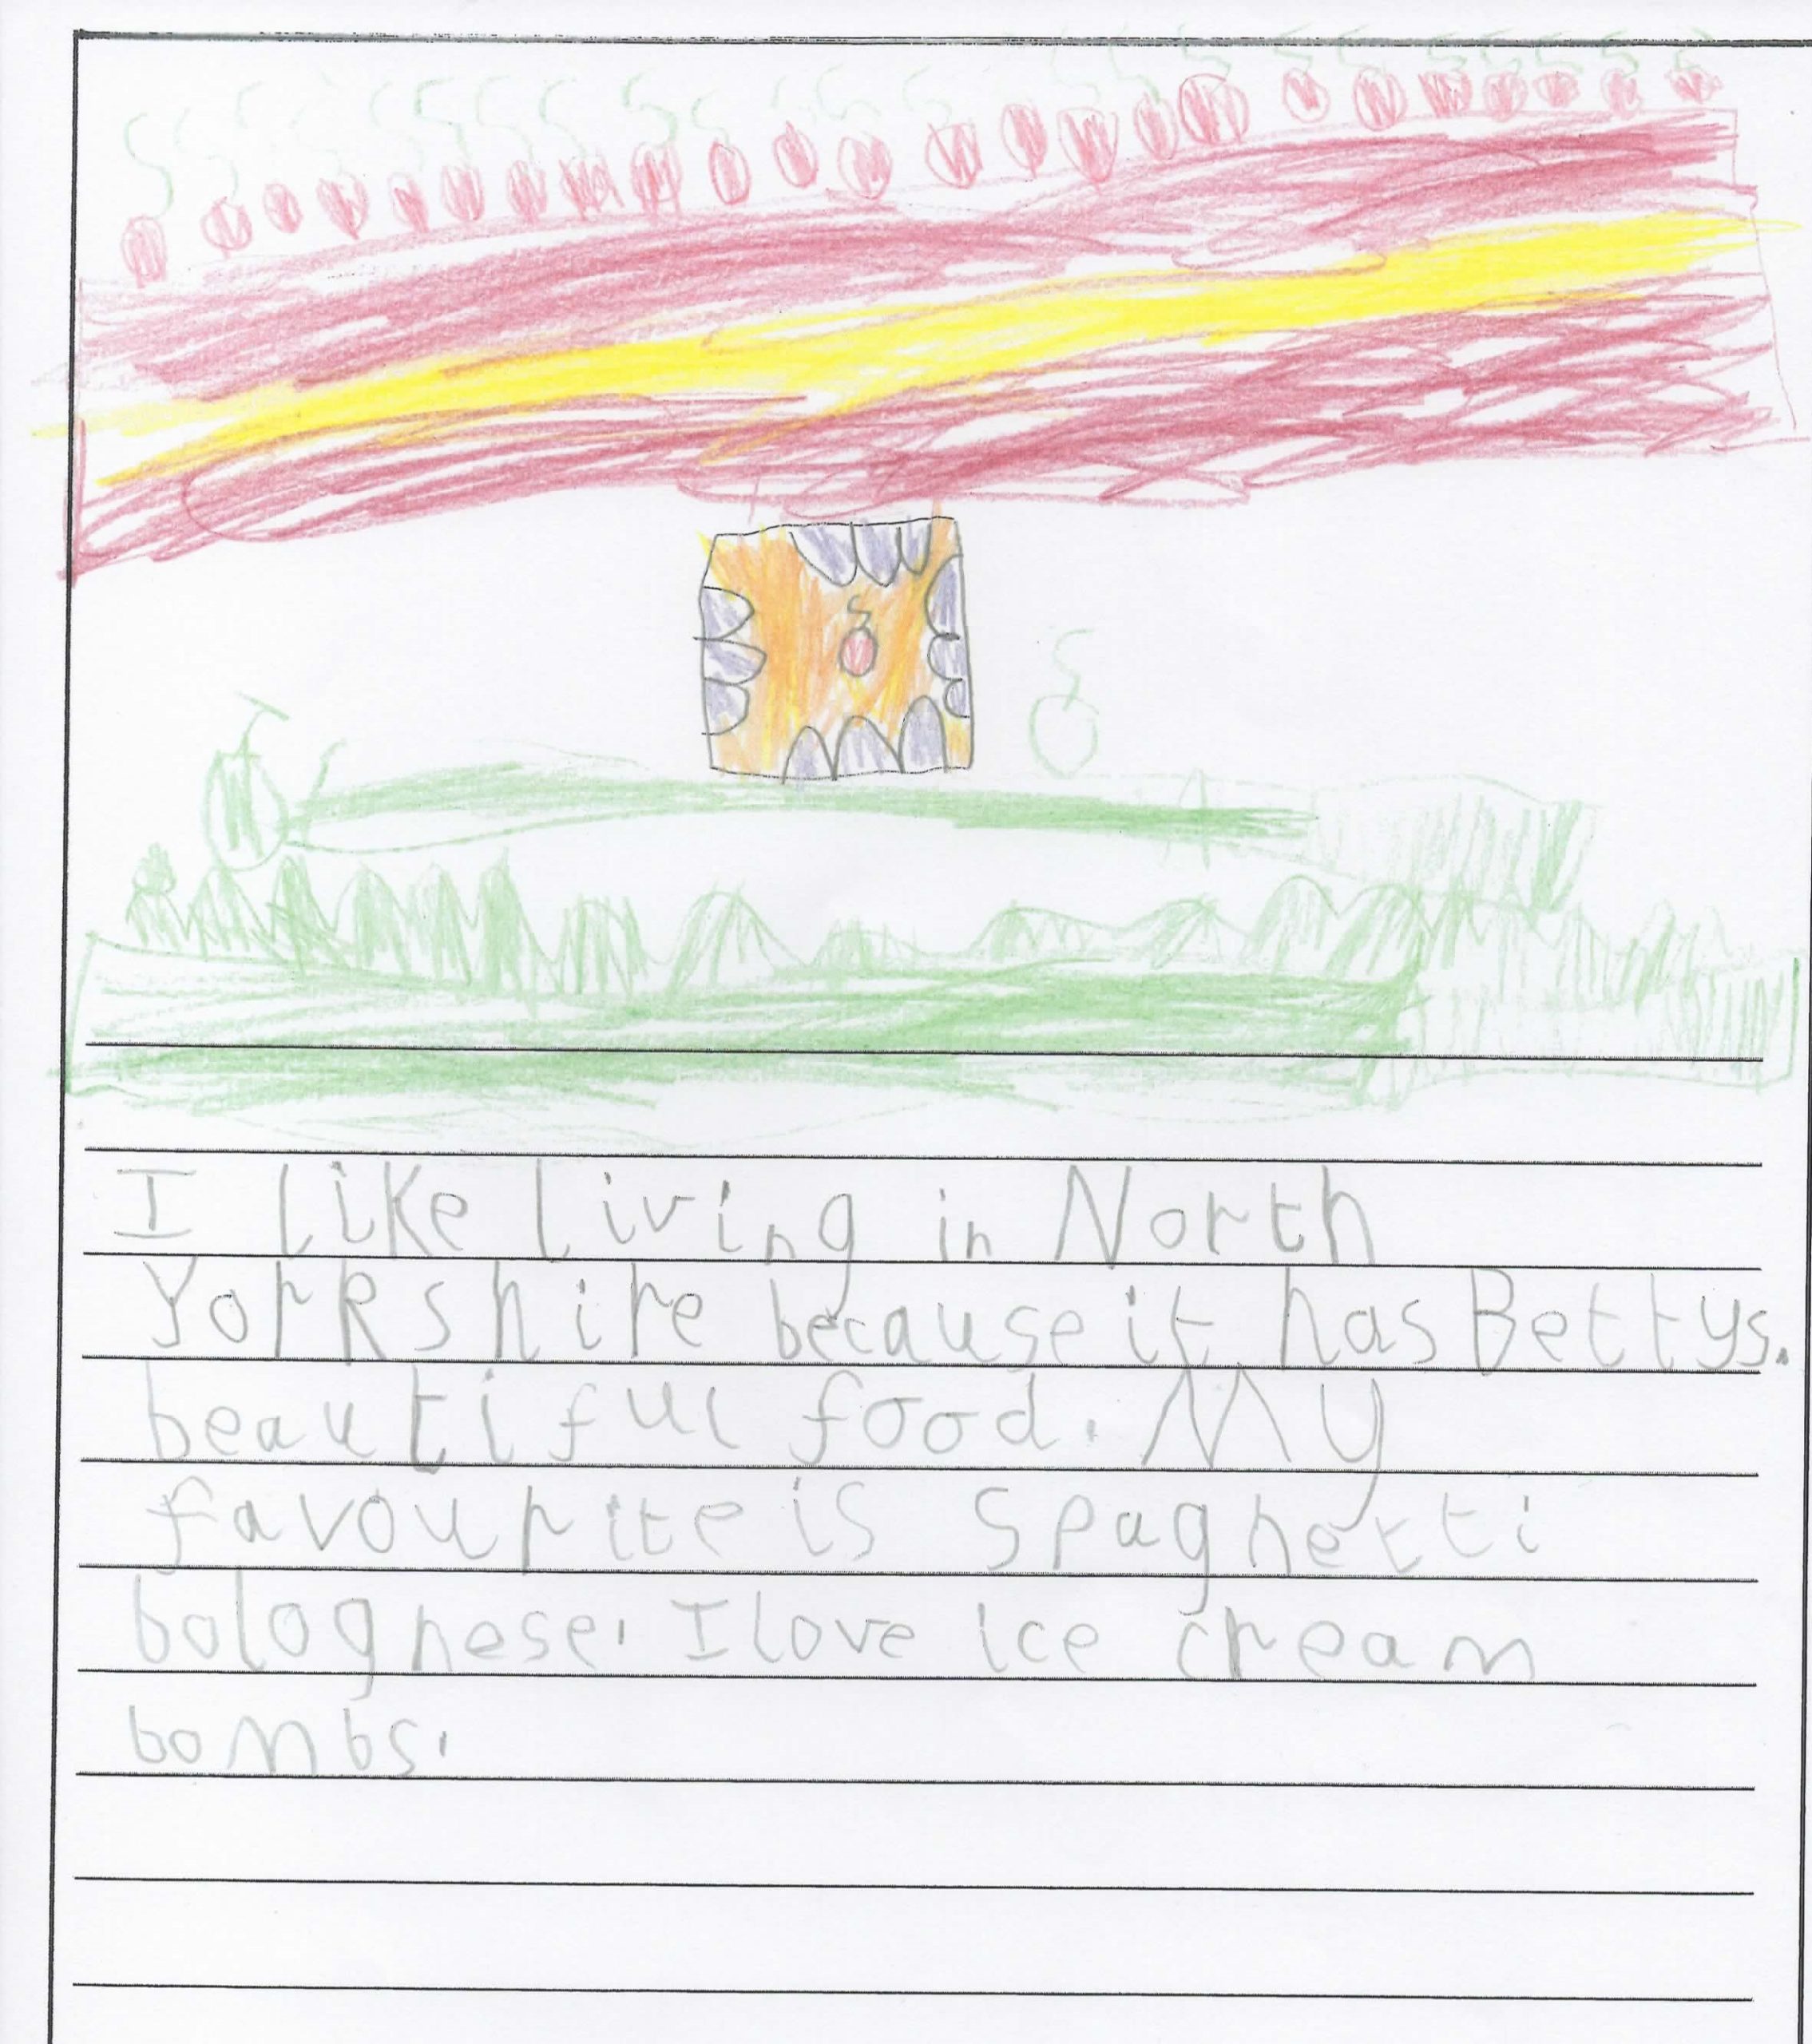 I like living in North
Yorkshire because it has Bettys.
beautiful food. My
favourite is spaghetti
bolognese. I love ice cream
bombs.